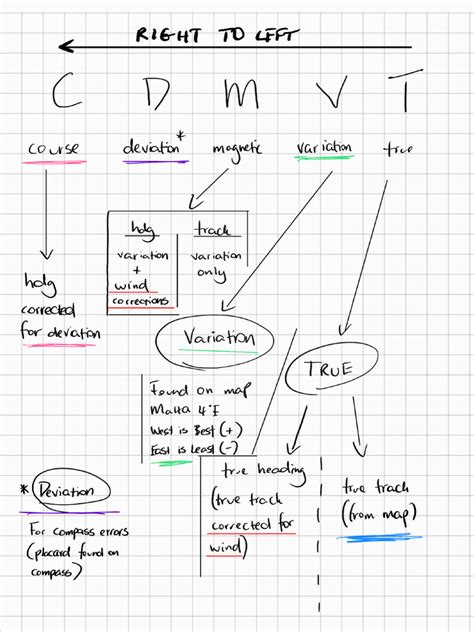 RIGHT TO LEFT
C D M V T
course deviation* magnetic variation true
hdg
variation
+
wind
corrections
track
variation
only
hdg
corrected
for deviation
Variation
TRUE
Found on map
Malta 4°E
West is Best (+)
East is Least (-)
true heading
(true track
corrected for
wind)
true track
(from map)
* Deviation
For compass errors
(placard found on
compass)